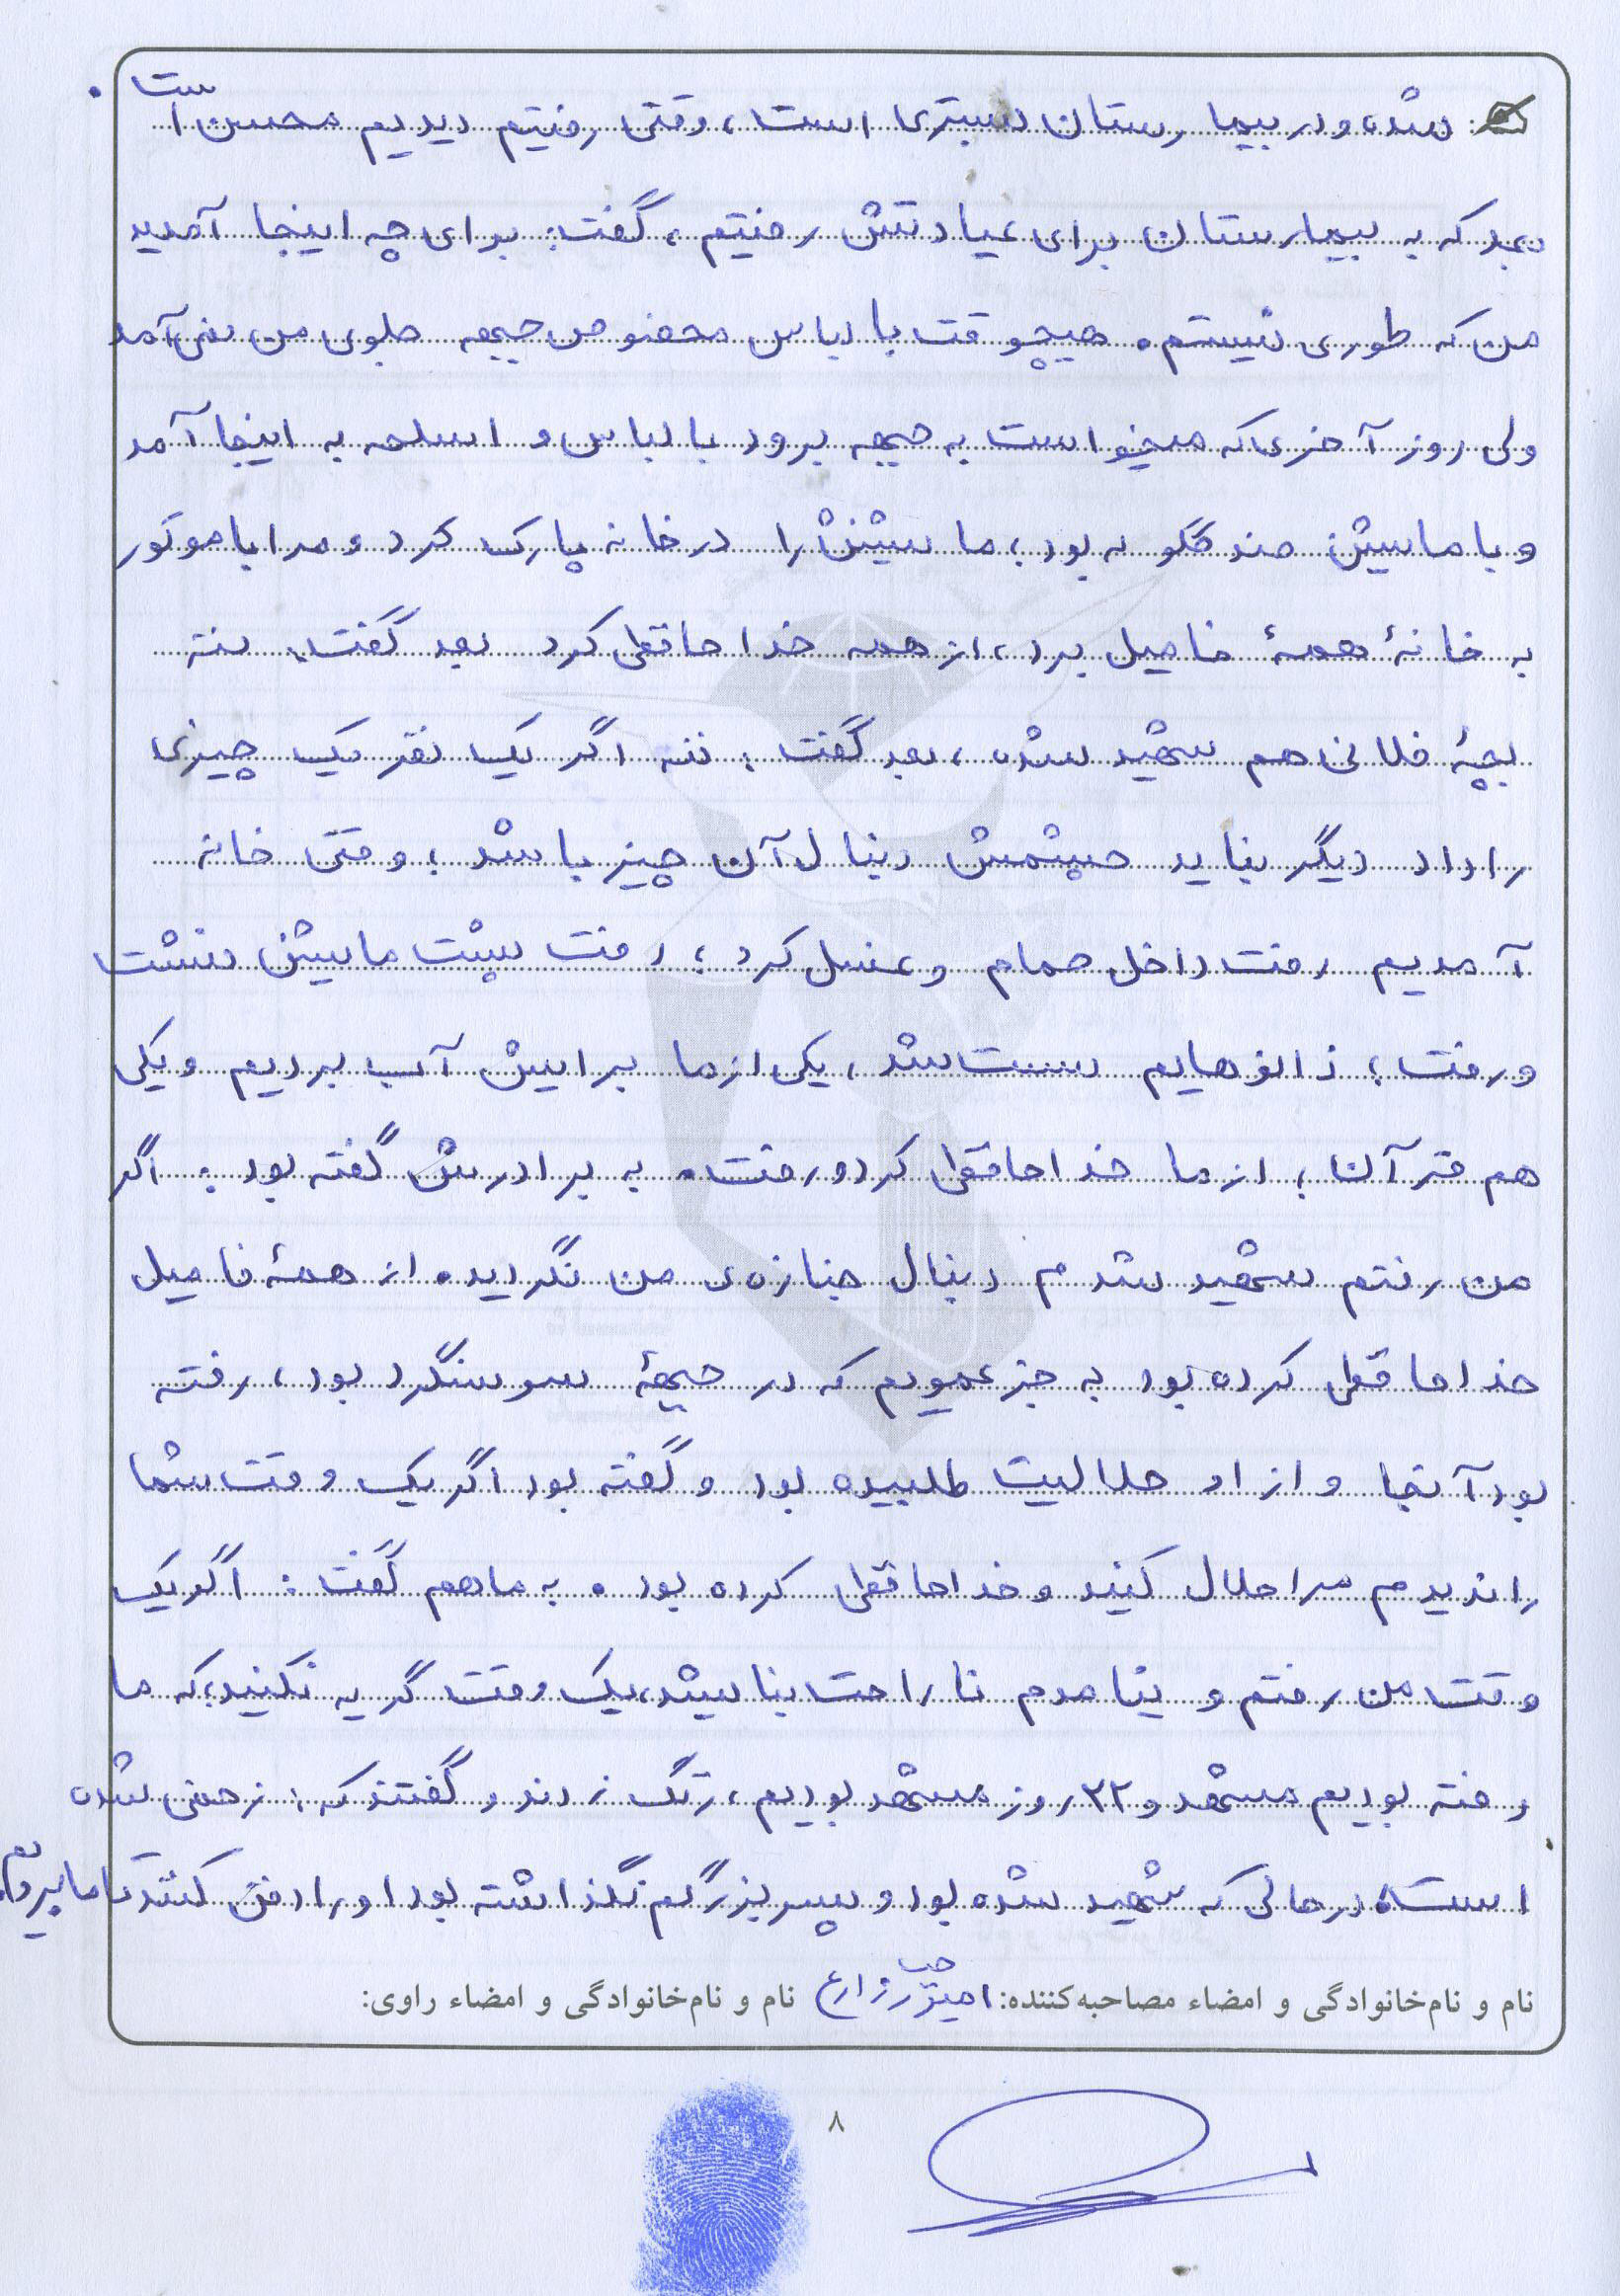 شده و در بیمارستان بستری است، وقتی رفتیم دیدیم محسن است.
بعد که به بیمارستان برای عیادتش رفتیم، گفت: برای چه اینجا آمدید
من که طوری نیستم. هیچوقت با لباس مخصوص جبهه جلوی من نمی‌آمد
ولی روز آخری که میخواست به جبهه برود با لباس و اسلحه به اینجا آمد
و با ماشین صندوقگو به بود؛ ماشینش را در خانه پارک کرد و مرا با موتور
به خانهٔ همهٔ فامیل برد، از همه خداحافظی کرد بعد گفت: ننه
بچهٔ فلانی هم شهید شده، بعد گفت: ننه اگر یک نفر یک چیزی
را داد دیگر نباید چشمش دنبال آن چیز باشد؛ وقتی خانه
آمدیم رفت داخل حمام و غسل کرد؛ رفت پشت ماشین نشست
و رفت؛ زانوهایم سست شد، یکی از ما برایش آب بردیم و یکی
هم قرآن؛ از ما خداحافظی کرد و رفت. به برادرش گفته بود: اگر
من رفتم شهید شدم دنبال جنازه‌ی من نگردید. از همهٔ فامیل
خداحافظی کرده بود به جز عمویم که در جبههٔ سوسنگرد بود، رفته
بود آنجا و از او حلالیت طلبیده بود و گفته بود اگر یک وقت شما
را ندیدم مرا حلال کنید و خداحافظی کرده بود. به ما هم گفت: اگر یک
وقت من رفتم و نیامدم ناراحت نباشید، یک وقت گریه نکنید؛ که ما
رفته بودیم مشهد و ۲۲ روز مشهد بودیم، زنگ زدند و گفتند که: زخمی شده
است در حالی که شهید شده بود و پسر بزرگم نگذاشته بود او را دفن کنند تا ما برویم.
نام و نام‌خانوادگی و امضاء مصاحبه‌کننده: زارع نام و نام‌خانوادگی و امضاء راوی:
۸